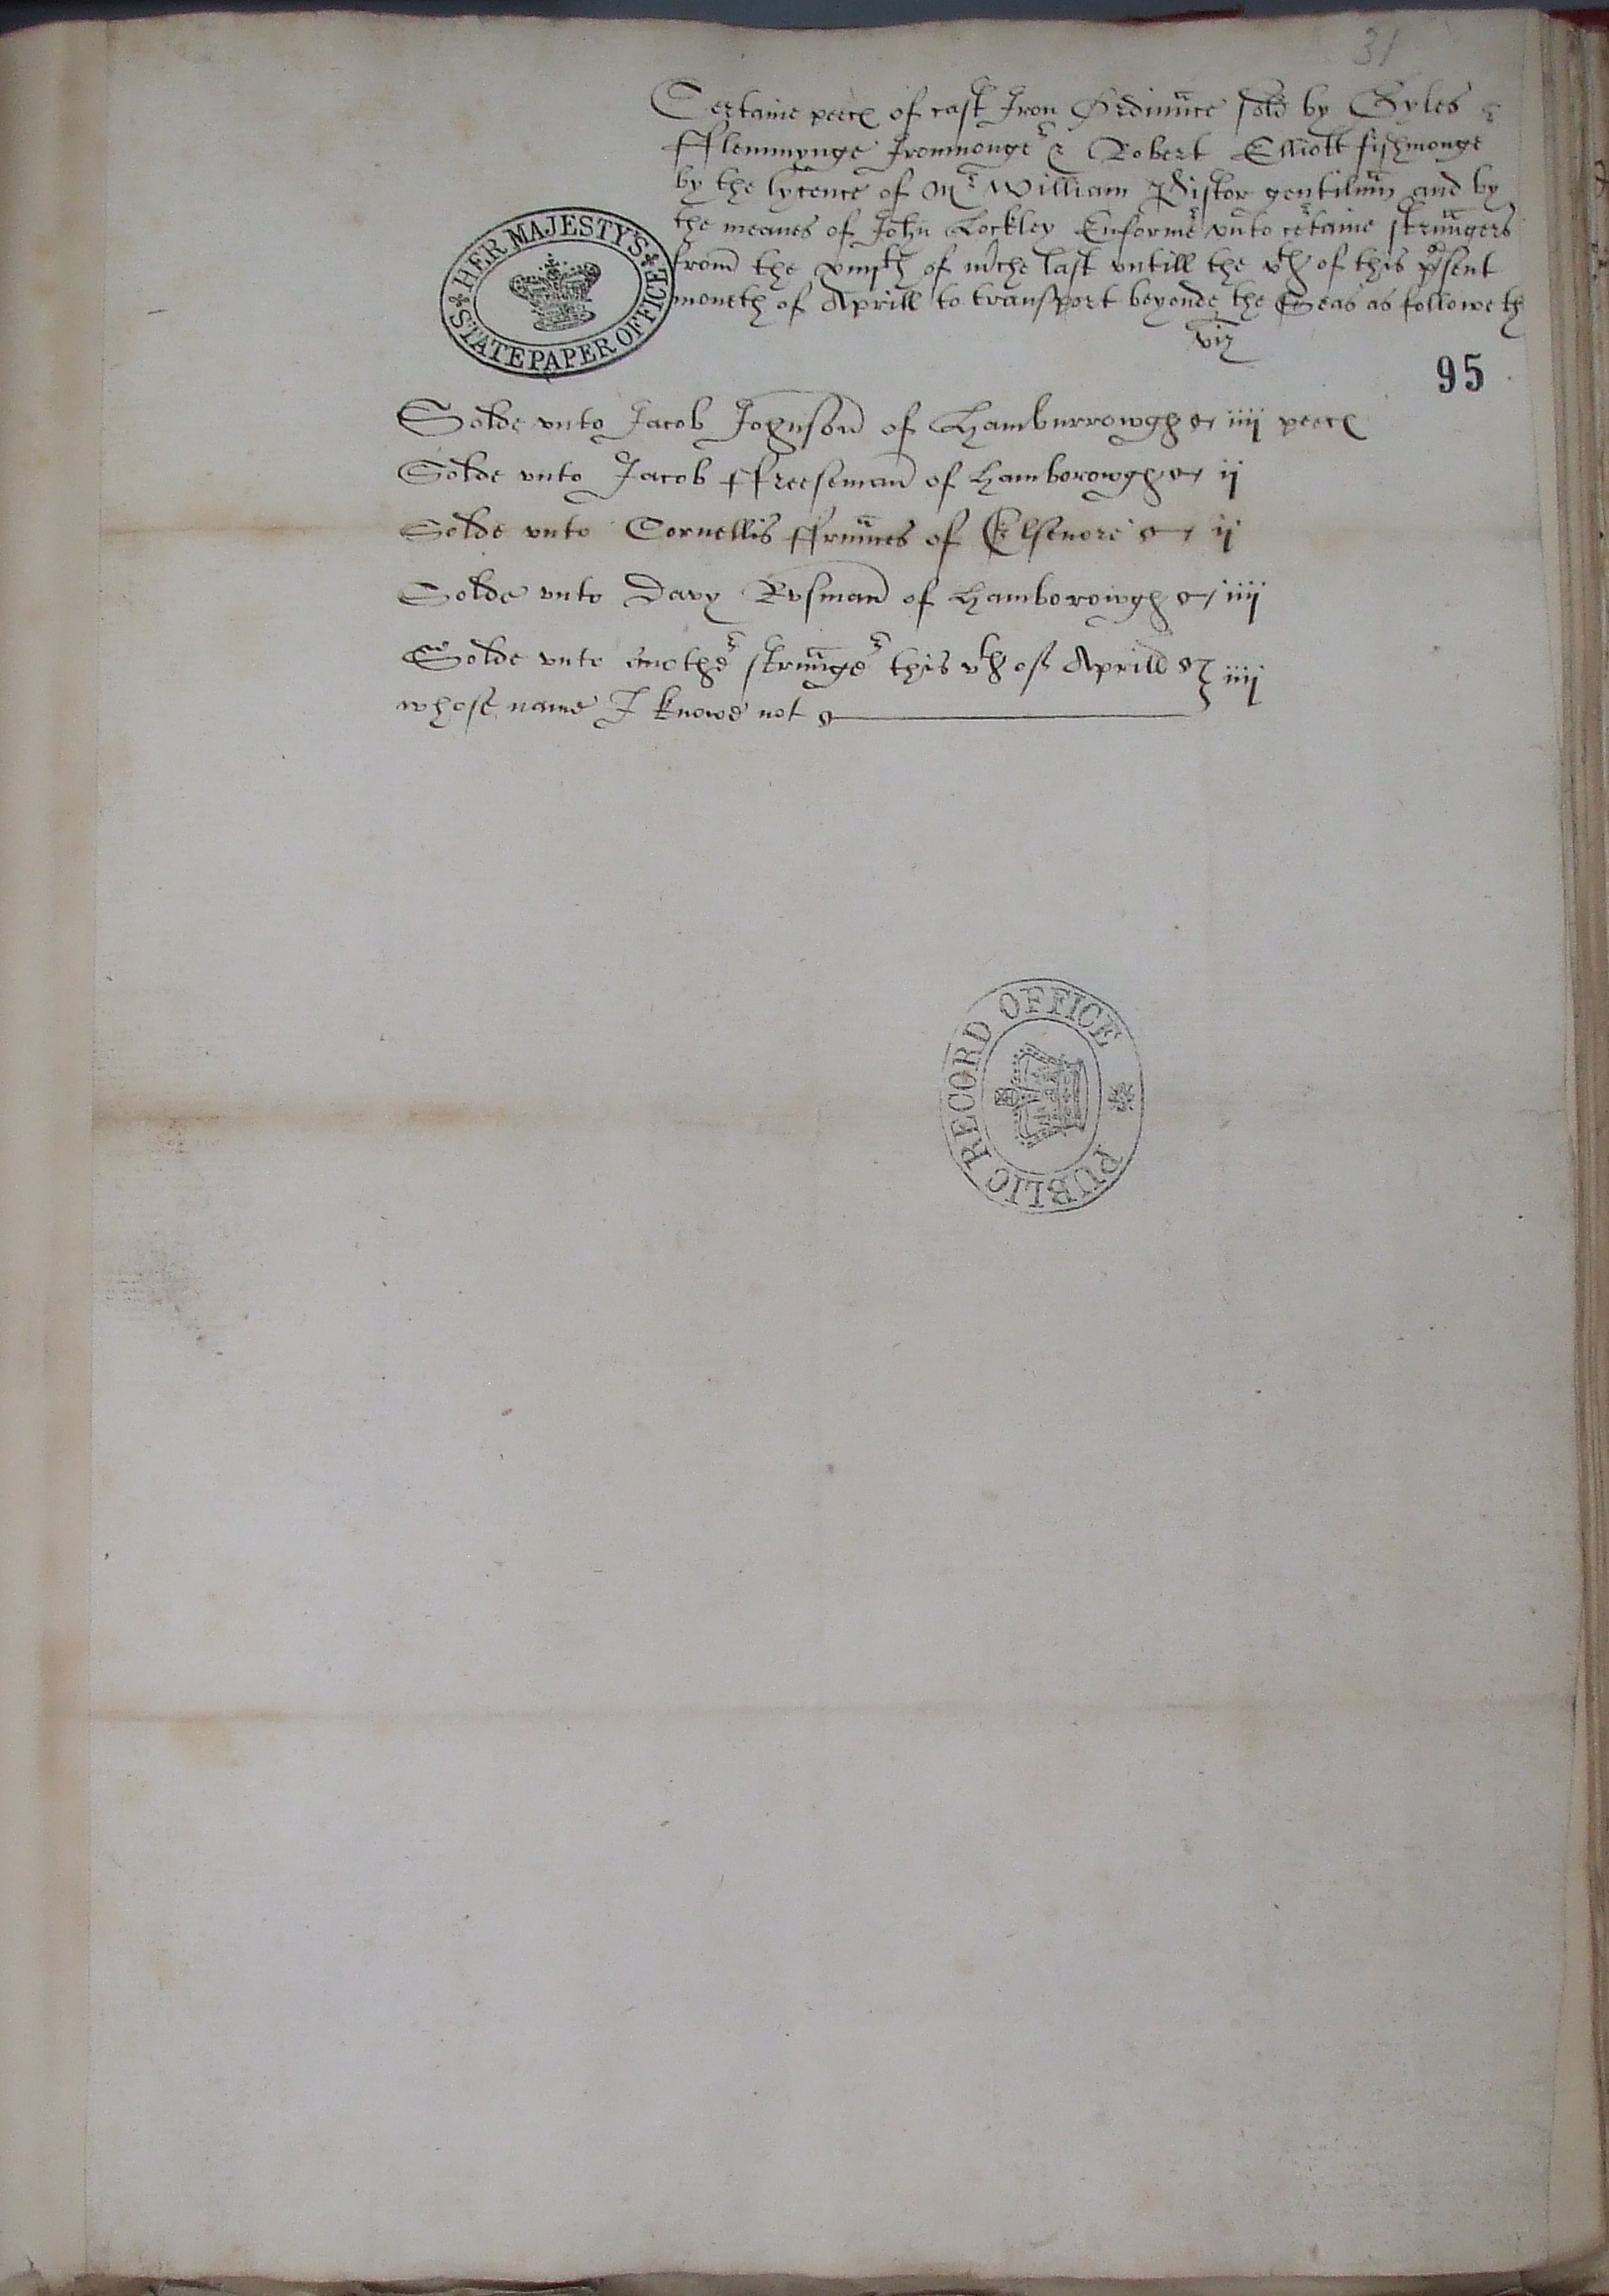 31
Certaine peeces of cast Iron Ordinance sold by Gyles
Fflemmynge Iremonger & Robert Elliott fishmonger
by the lycence of Mr William Pistor gentilman and by
the meanes of John Lockley Enformer vnto certaine strangers
from the of mche last vntill the vth of this present
moneth of Aprill to transport beyonde the Seas as followeth
viz
HER MAJESTY'S STATE PAPER OFFICE
95
Solde vnto Jacob Johnson of Hamburrowgh iiij peeces
Solde vnto Jacob Ffreeseman of Hamborowgh ij
Solde vnto Cornellis Ffrannces of Elsenore ij
Solde vnto Davy Rusman of Hamborowgh iiij
Solde vnto another stranger this vth of Aprill iiij
whose name I knowe not
PUBLIC RECORD OFFICE